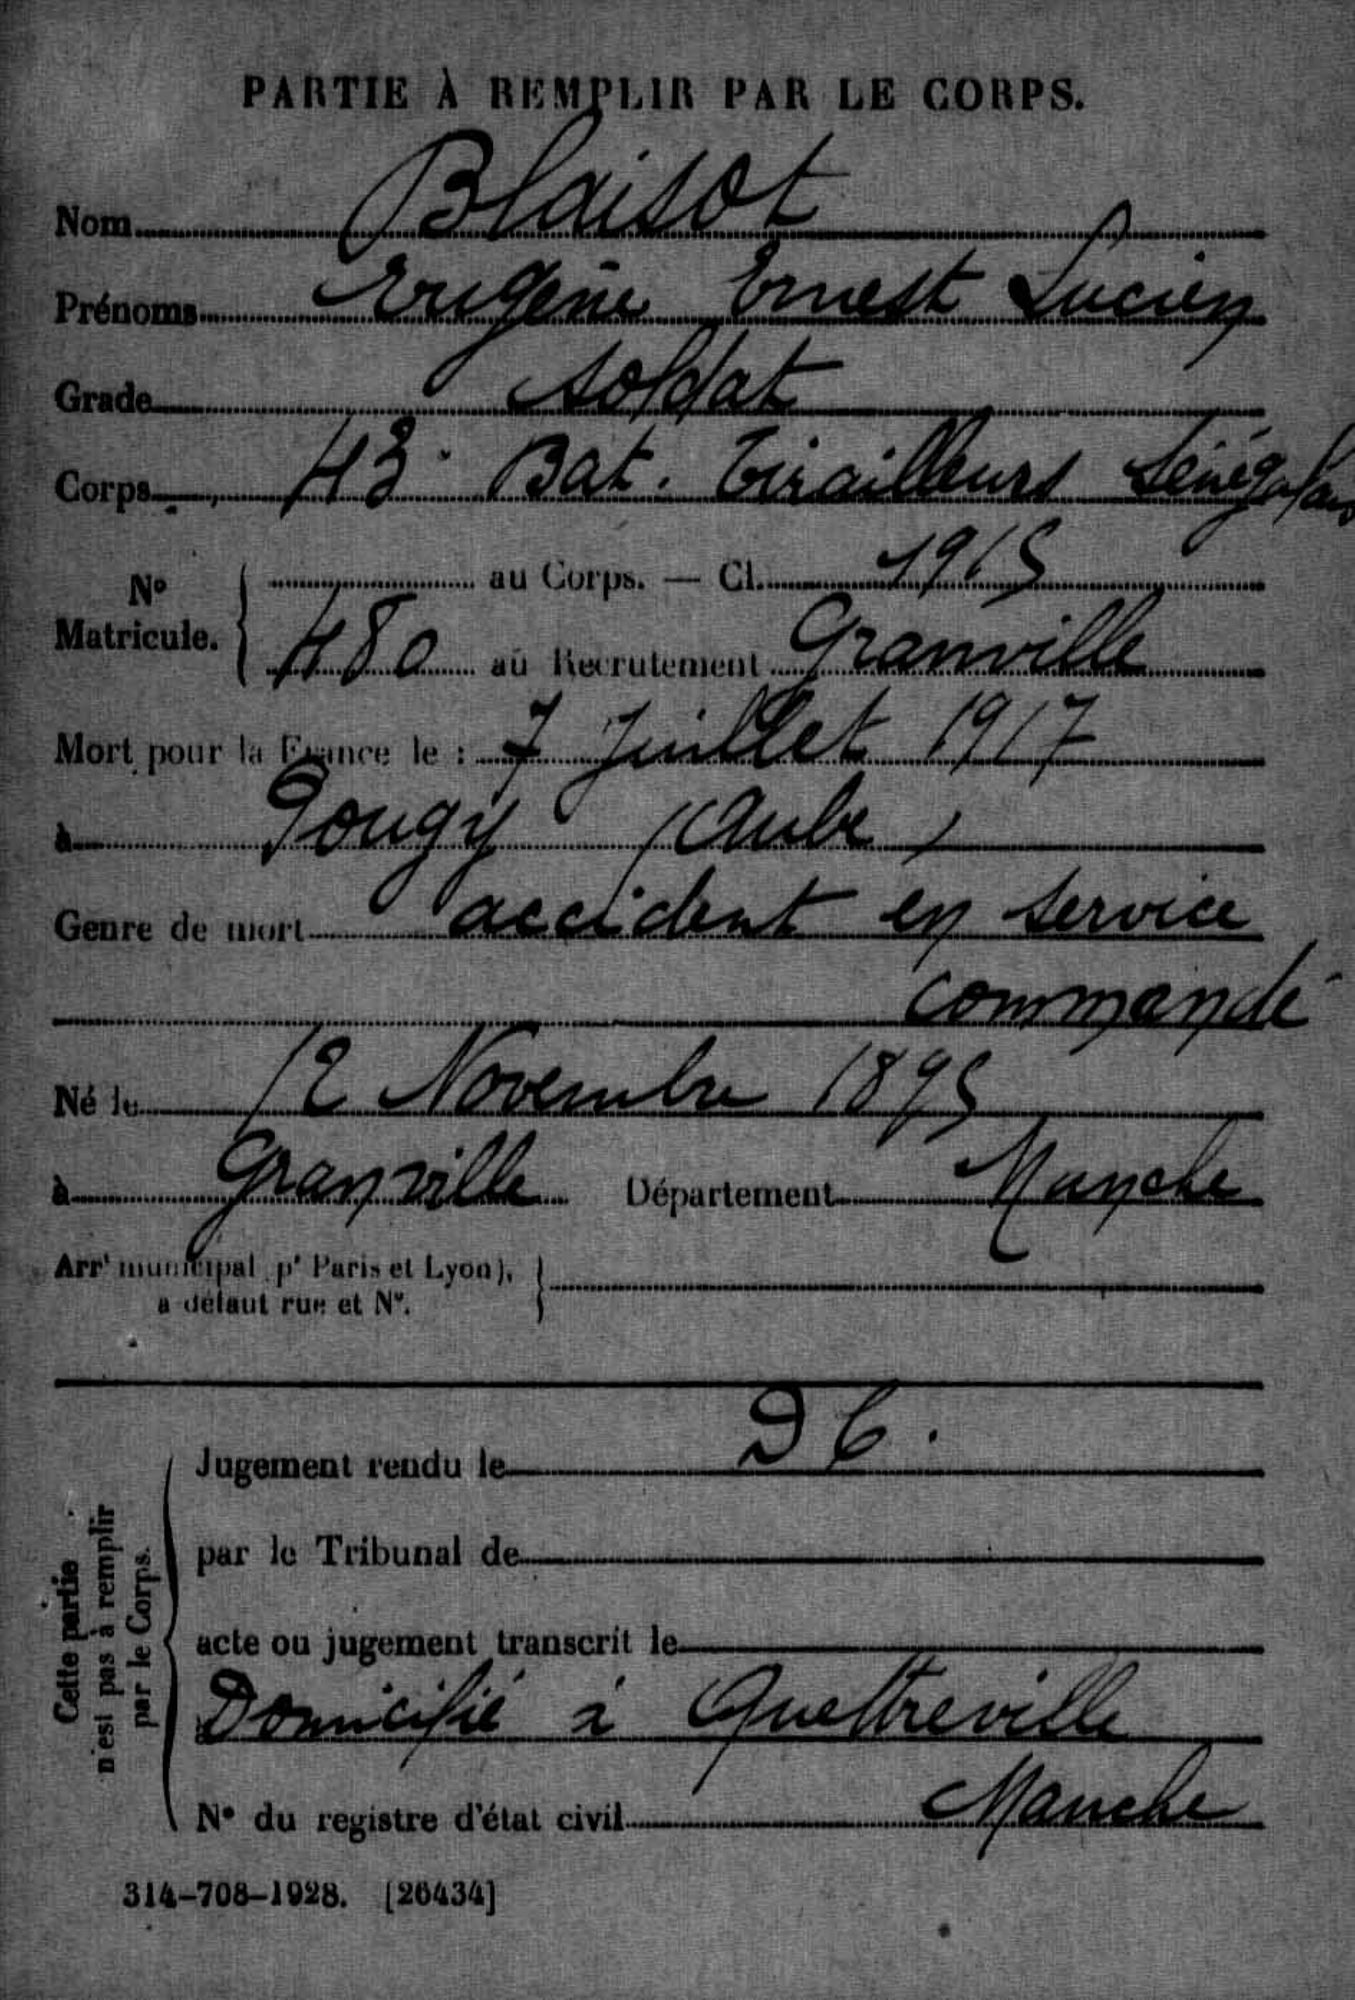 PARTIE À REMPLIR PAR LE CORPS.
Nom Blaisot
Prénoms Eugène Ernest Lucien
Grade soldat
Corps 43e Bat. Tirailleurs Sénégalais
No Matricule. { au Corps. — Cl. 1915
480 au Recrutement Granville
Mort pour la France le : 7 Juillet 1917
à Pougy (Aube)
Genre de mort accident en service
commandé
Né le 12 Novembre 1895
à Granville Département Manche
Arrt municipal (pr Paris et Lyon), }
à défaut rue et No.
Cette partie n'est pas à remplir par le Corps.
Jugement rendu le D C.
par le Tribunal de
acte ou jugement transcrit le
Domicilié à Quettreville
Manche
No du registre d'état civil
314-708-1928. [26434]